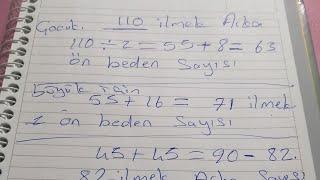 Çocuk. 110 ilmek Arka
110 ÷ 2 = 55 + 8 = 63
ön beden Sayısı
Büyük için
55 + 16 = 71 ilmek
ön beden Sayısı
45 + 45 = 90 - 82.
82 ilmek Arka